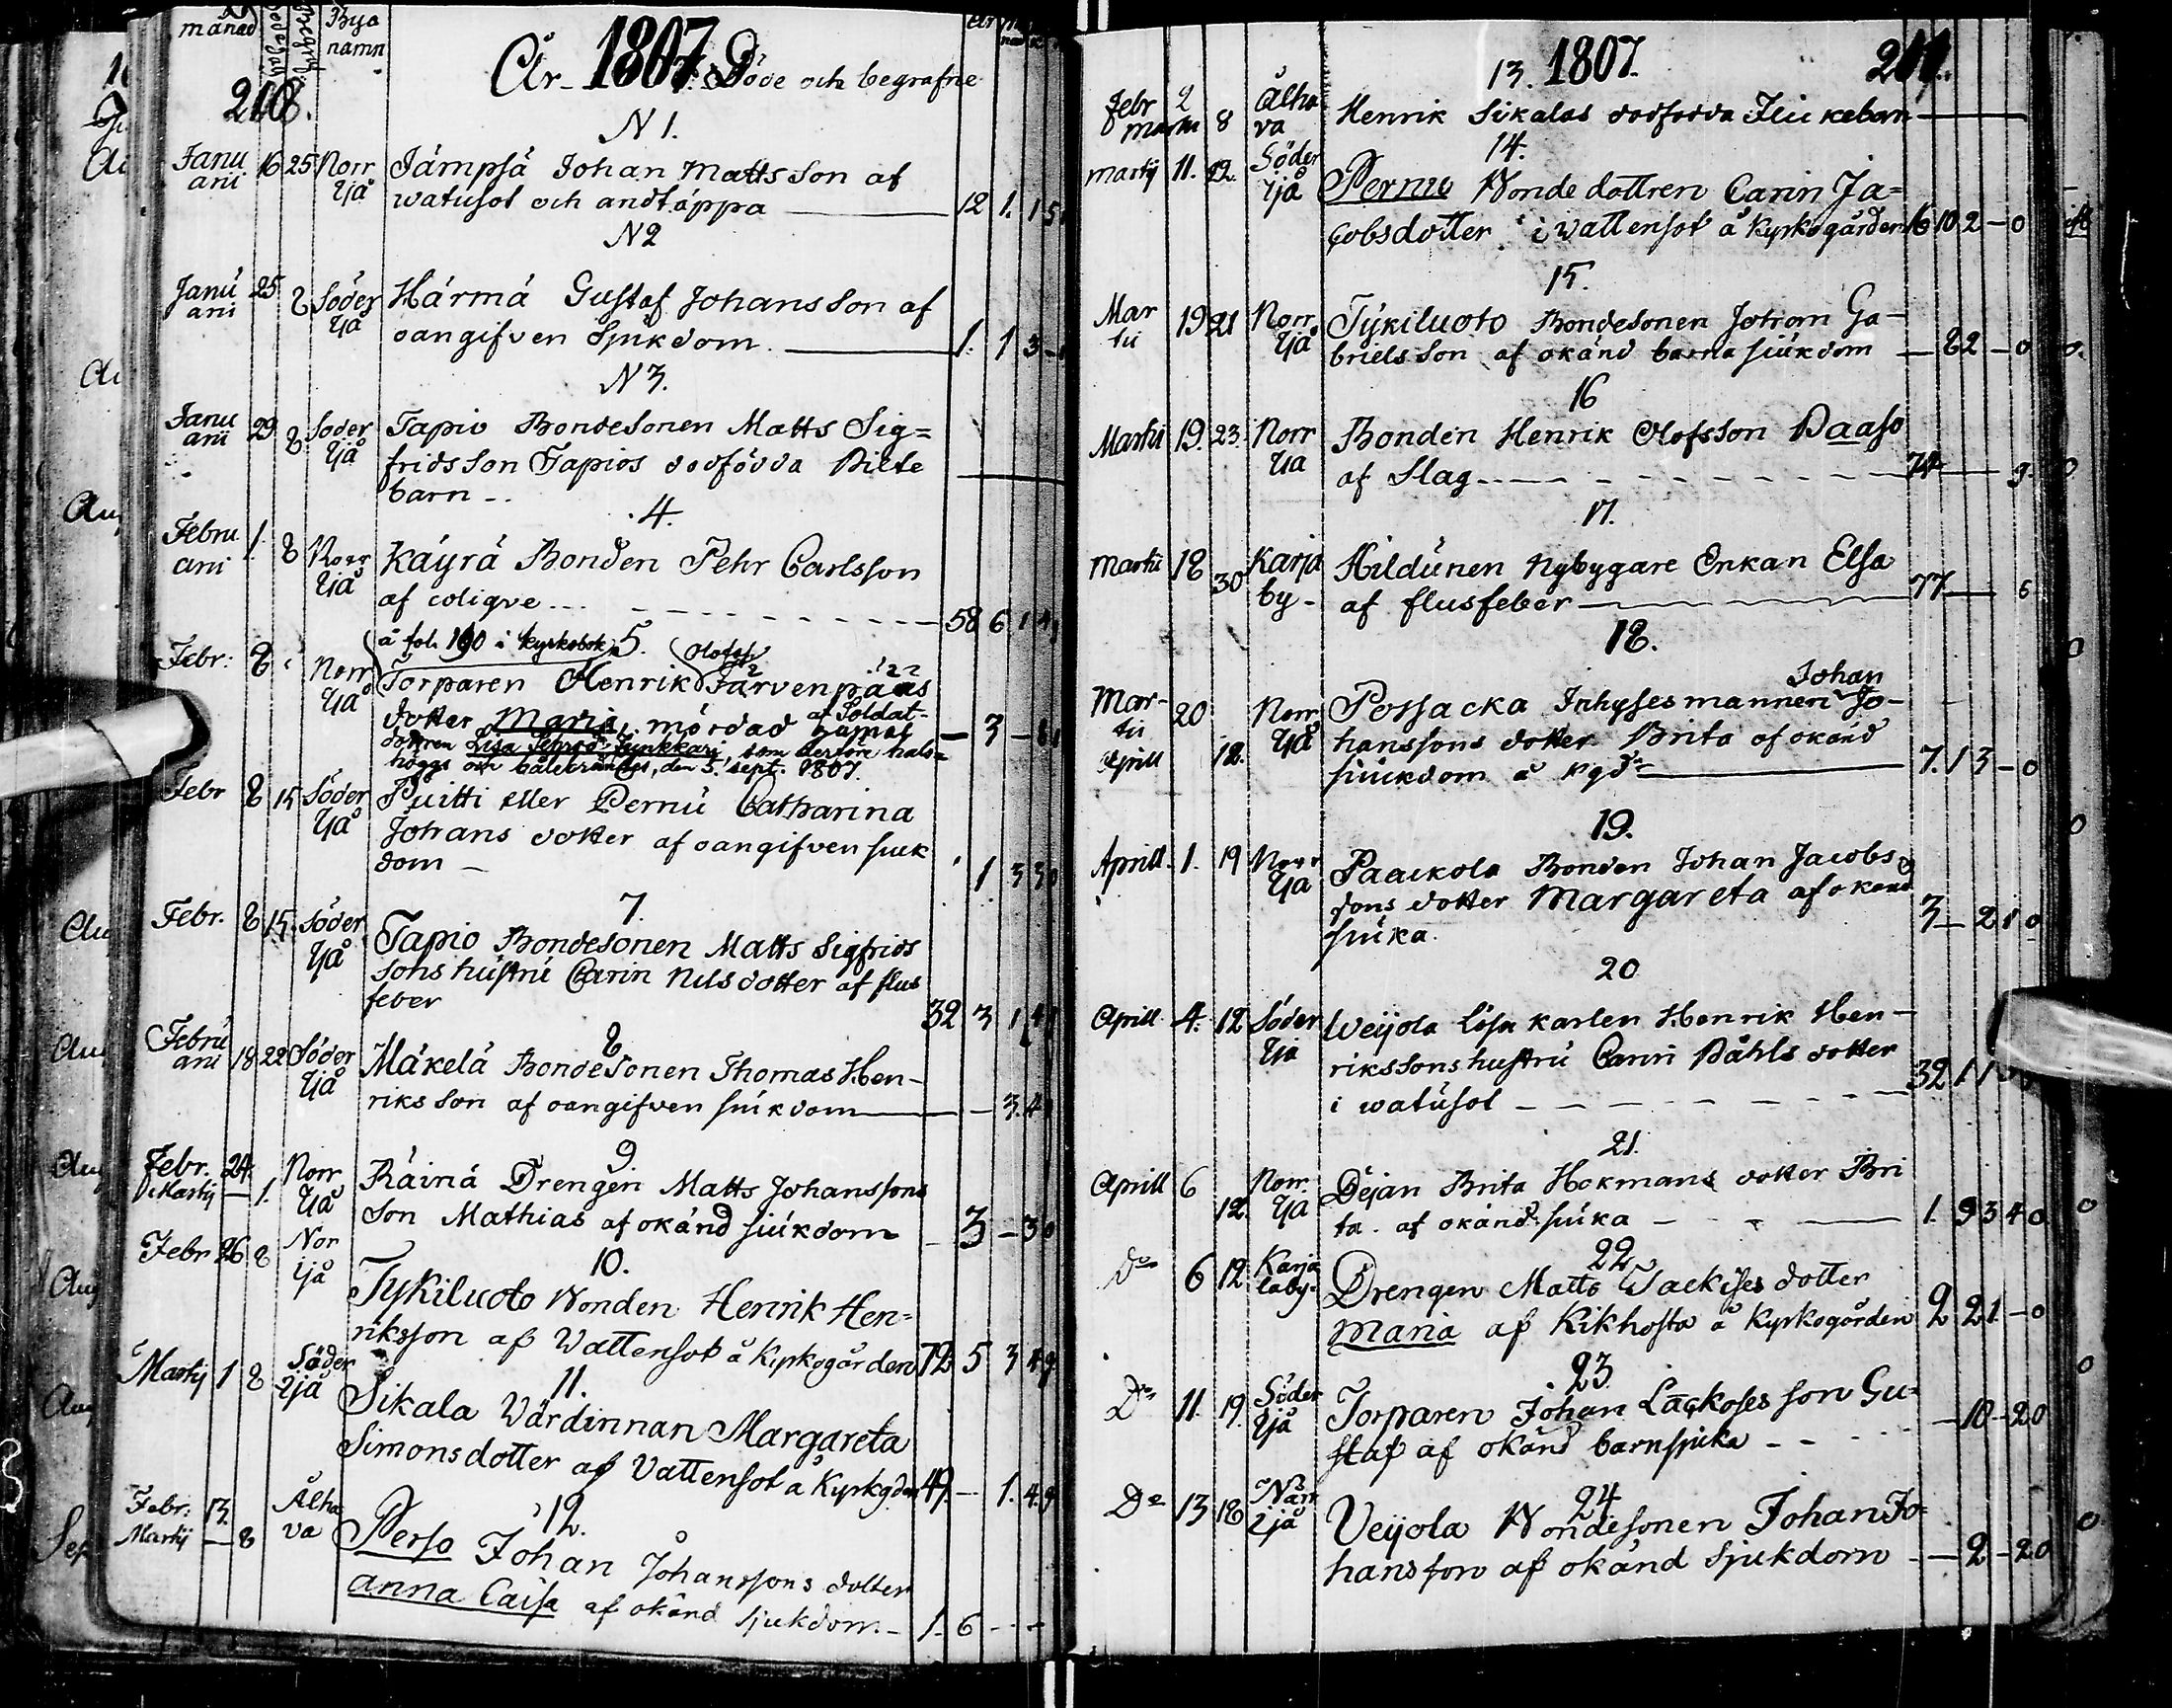 månad
Bya
namn
År 1807 Döde och begrafne
218.
N 1.
Janu
ani 16 25 Norr
Ijå
Jämpsä Johan Mattsson af
watusot och andtäppa 12 1. 1 5
N 2
Janu
ani 25 8 Söder
Ijå
Härmä Gustaf Johansson af
oangifven Sjukdom. 1. 1 3
N 3.
Janu
ani 29 8 Söder
Ijå
Tapio Bondesonen Matts Sig=
fridsson Tapios dödfödda Pilte
barn
4.
Febru
ani 1. 8 Norr
Ijå
Käyrä Bonden Pehr Carlsson
af colique 58 6 1
å fol. 190 i kyrkobok 5. Olofss
Febr: 8 Norr
Ijå
Torparen Henrik Järvenpääs
dotter Maria, mördad af Soldat-
dottren Lisa Junkkari som derföre hals=
höggs och bålebrändes, den 5. Sept. 1807. 3
Febr 8 15 Söder
Ijå
Puitti eller Pernu Catharina
Johans dotter af oangifven siuk
dom 1 3 30
7.
Febr. 8 15 Söder
Ijå
Tapio Bondesonen Matts Sigfrids
sons hustru Carin Nils dotter af flus
feber 32 3 1
8
Febru
ani 18 22 Söder
Ijå
Mäkelä Bondesonen Thomas Hen-
riks son af oangifven siukdom 3. 4
9.
Febr. 24.
Martij 1. Norr
Ijå
Räinä Drengen Matts Johanssons
Son Mathias af okänd siukdom 3 - 30
10.
Febr 26 8 Nor
Ijå
Tykiluoto Bonden Henrik Hen=
riksson af Wattensot å Kyrkogården 72 5 3 4
11.
Martij 1 8 Söder
Ijå
Sikala Wärdinnan Margareta
Simonsdotter af Vattensot å Kyrkgdn 49. - 1. 4
12.
Febr. 13.
Martij 8 Alha
va
Perso Johan Johanssons dotter
Anna Caisa af okänd Sjukdom. 1. 6
13. 1807. 219.
Febr 2
Martii 8 Alha
va
Henrik Sikalas dödfödda Flickebarn
14.
Martij 11. 12. Söder
Ijå
Pernu Bonde dottren Carin Ja=
cobsdotter i wattensot å Kyrkogården 16 10 2 - 0
15.
Mar
tii 19 21 Norr
Ijå
Tykiluoto Bondesonen Johan Ga-
brielsson af okänd barnasiukdom 2 2 - 0
16
Martii 19. 23. Norr
Ija
Bonden Henrik Olofsson Paaso
af Slag 74 9.
17.
Martii 18 30 Karja
by-
Hildunen Nybygare Enkan Elsa
af flusfeber 77 6
18.
Mar-
tii 20
Aprill 12. Norr
Ijå
Johan
Possacka Inhyses mannen Jo-
hanssons dotter Brita af okänd
siukdom å kgdn 7. 1 3 - 0
19.
Aprill. 1. 19 Norr
Ija
Paackola Bonden Johan Jacobs
sons dotter Margareta af okänd
siuka. 3 - 2 1 0
20
Aprill 4. 12 Söder
Ija
Weijola Lösa karlen Henrik Hen-
rikssons hustru Carin Påhls dotter
i watusot 32 1 1
21.
Aprill 6 12. Norr
Ija
Dejan Brita Hokmans dotter Bri
ta. af okänd siuka 1. 9 3 4 0
22
Do 6 12 Karja
laby.
Drengen Matts Tackises dotter
Maria af Kikhosta å Kyrkogården 2 2 1 - 0
23.
Do 11. 19. Söder
Ijå
Torparen Johan Lackoses son Gu-
staf af okänd barnsjuka - 10 - 20
24
Do 13 18 Norr
Ijå
Veijola Bondesonen Johan Jo-
hansson af okänd Sjukdom - 2 - 20